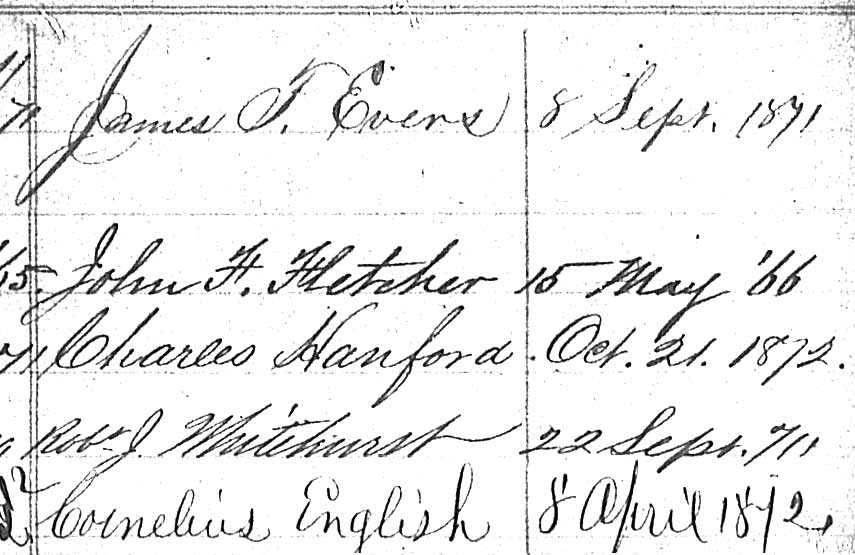 71 James T. Evens 8 Sept. 1871
65. John F. Fletcher 15 May '66
71 Charles Hanford. Oct. 21. 1872.
Robt J. Whitehurst 22 Sept. 71
Cornelius English 8 April 1872,